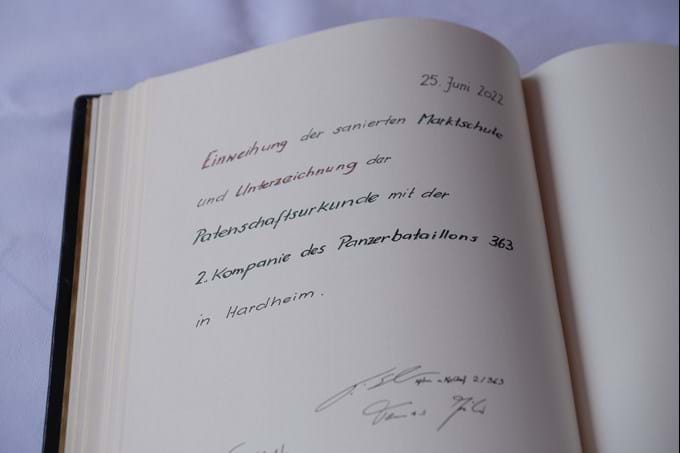 25. Juni 2022
Einweihung der sanierten Marktschule
und Unterzeichnung der
Patenschaftsurkunde mit der
2. Kompanie des Panzerbataillons 363
in Hardheim.
2/363